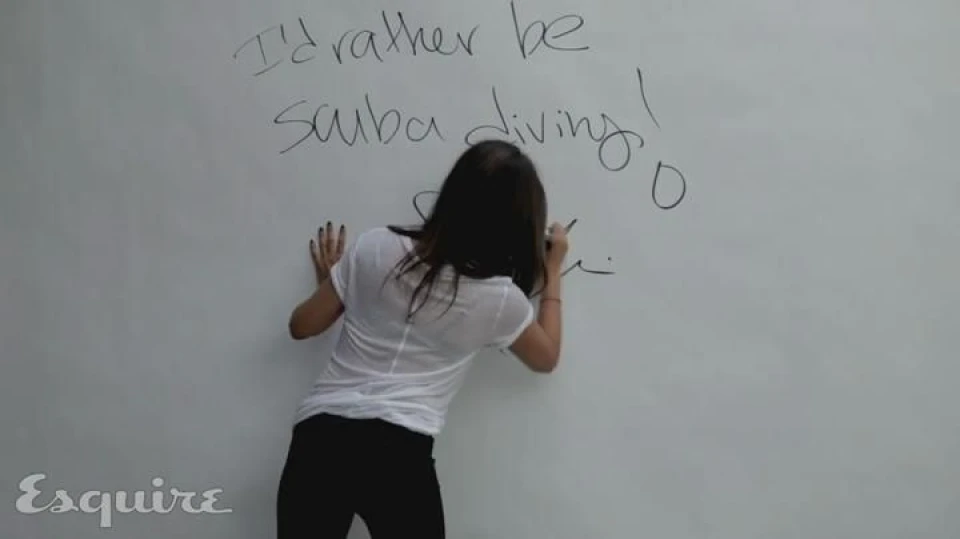 I'd rather be
scuba diving!
Esquire